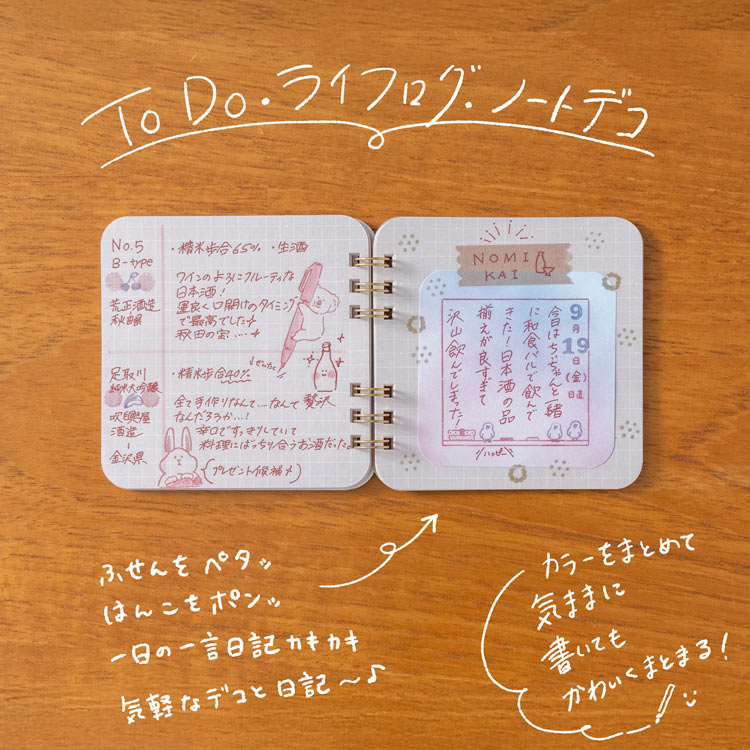 To Do・ライフログ・ノートデコ
No.5
B-type
荒正酒造
秋醸
・精米歩合65% ・生酒
ワインのようにフルーティな
日本酒!
運良く口開けのタイミング
で最高でした
秋田の宝…
足取川
純米大吟醸
吹奥屋
酒造
金沢県
・精米歩合40%
ぜいたく
全て手作りなんて…なんて贅沢
なんだろうか…!
辛口ですっきりしていて
料理にばっちり合うお酒だった。
(プレゼント候補)
NOMI
KAI
9月19日(金)
日直
今日はちぃちゃんと一緒
に和食バルで飲んで
きた!日本酒の品
揃えが良すぎて
沢山飲んでしまった!
ハッピー
ふせんをペタッ
はんこをポンッ
一日の一言日記カキカキ
気軽なデコと日記〜♪
カラーをまとめて
気ままに
書いても
かわいくまとまる!